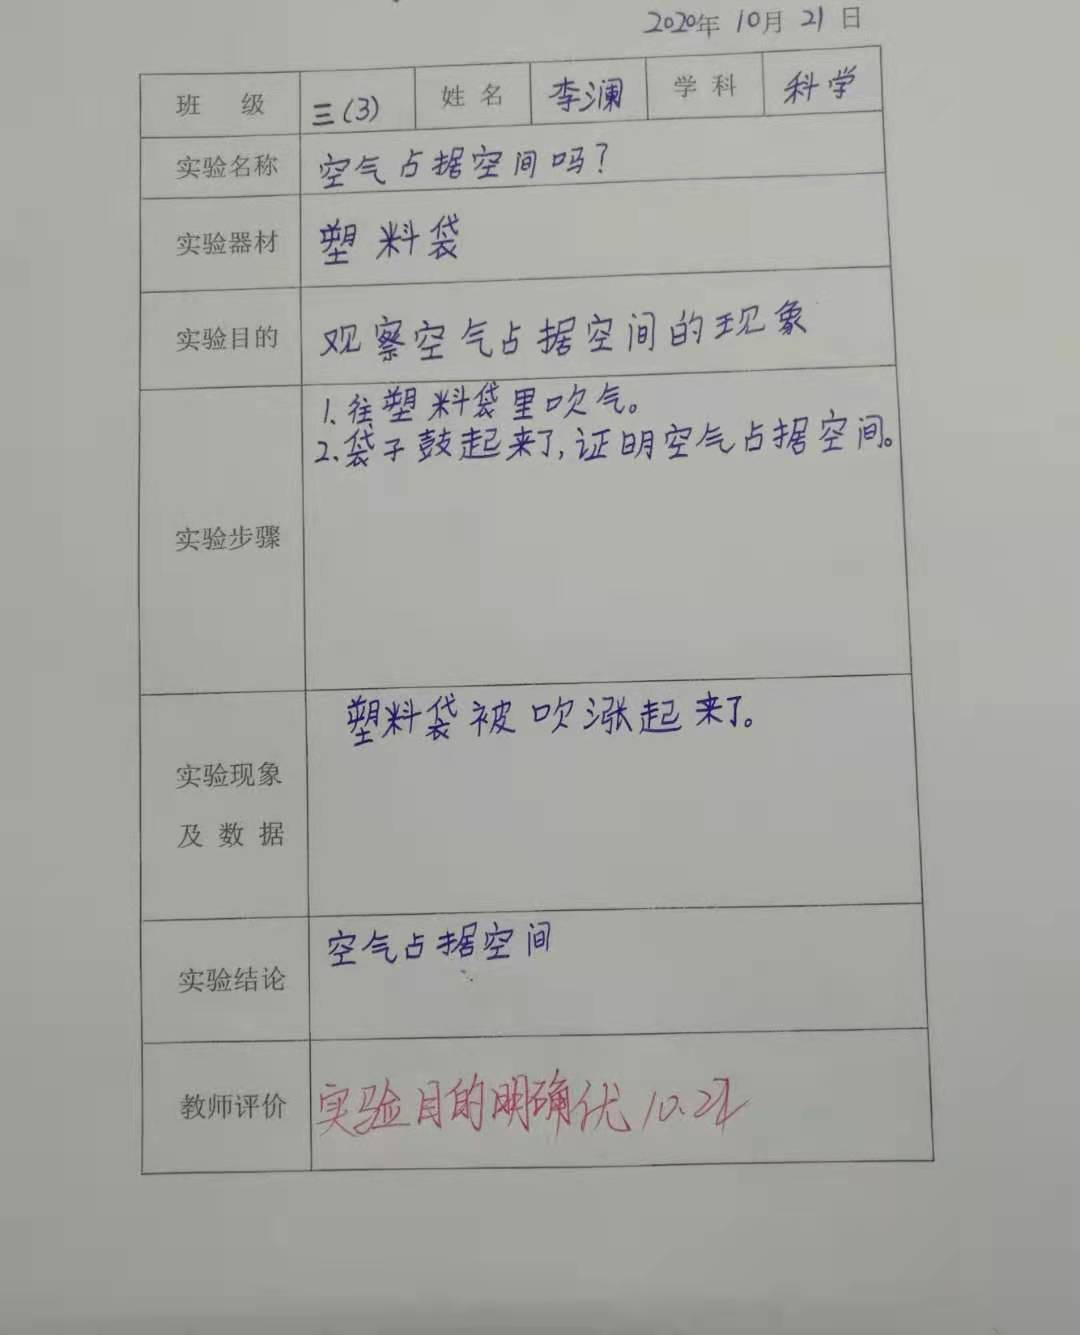 2020年 10月 21日
班 级 三(3) 姓 名 李澜 学 科 科学
实验名称 空气占据空间吗?
实验器材 塑料袋
实验目的 观察空气占据空间的现象
实验步骤
1.往塑料袋里吹气。
2.袋子鼓起来了,证明空气占据空间。
实验现象
及 数 据
塑料袋被吹涨起来了。
实验结论 空气占据空间
教师评价 实验目的明确优